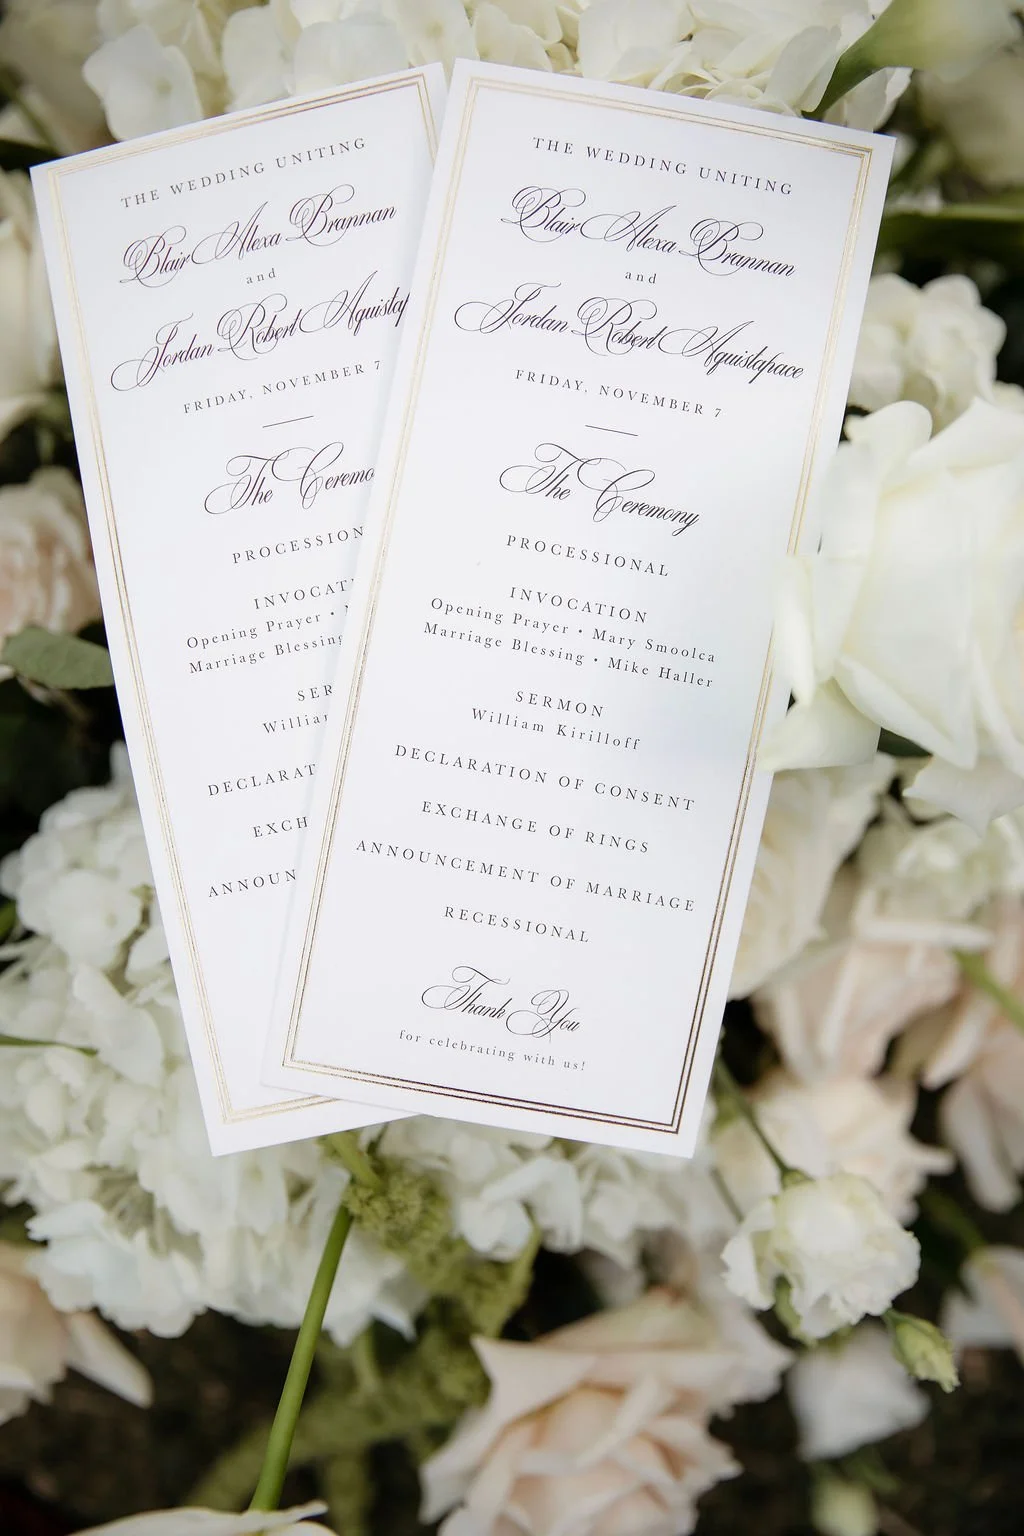 THE WEDDING UNITING
Blair Alexa Brannan
and
Jordan Robert Aquistap
FRIDAY, NOVEMBER 7
The Ceremo
PROCESSION
INVOCAT
Opening Prayer •
Marriage Blessing
SER
William
DECLARAT
EXCH
ANNOUN
THE WEDDING UNITING
Blair Alexa Brannan
and
Jordan Robert Aquistapace
FRIDAY, NOVEMBER 7
The Ceremony
PROCESSIONAL
INVOCATION
Opening Prayer • Mary Smoolca
Marriage Blessing • Mike Haller
SERMON
William Kirilloff
DECLARATION OF CONSENT
EXCHANGE OF RINGS
ANNOUNCEMENT OF MARRIAGE
RECESSIONAL
Thank You
for celebrating with us!